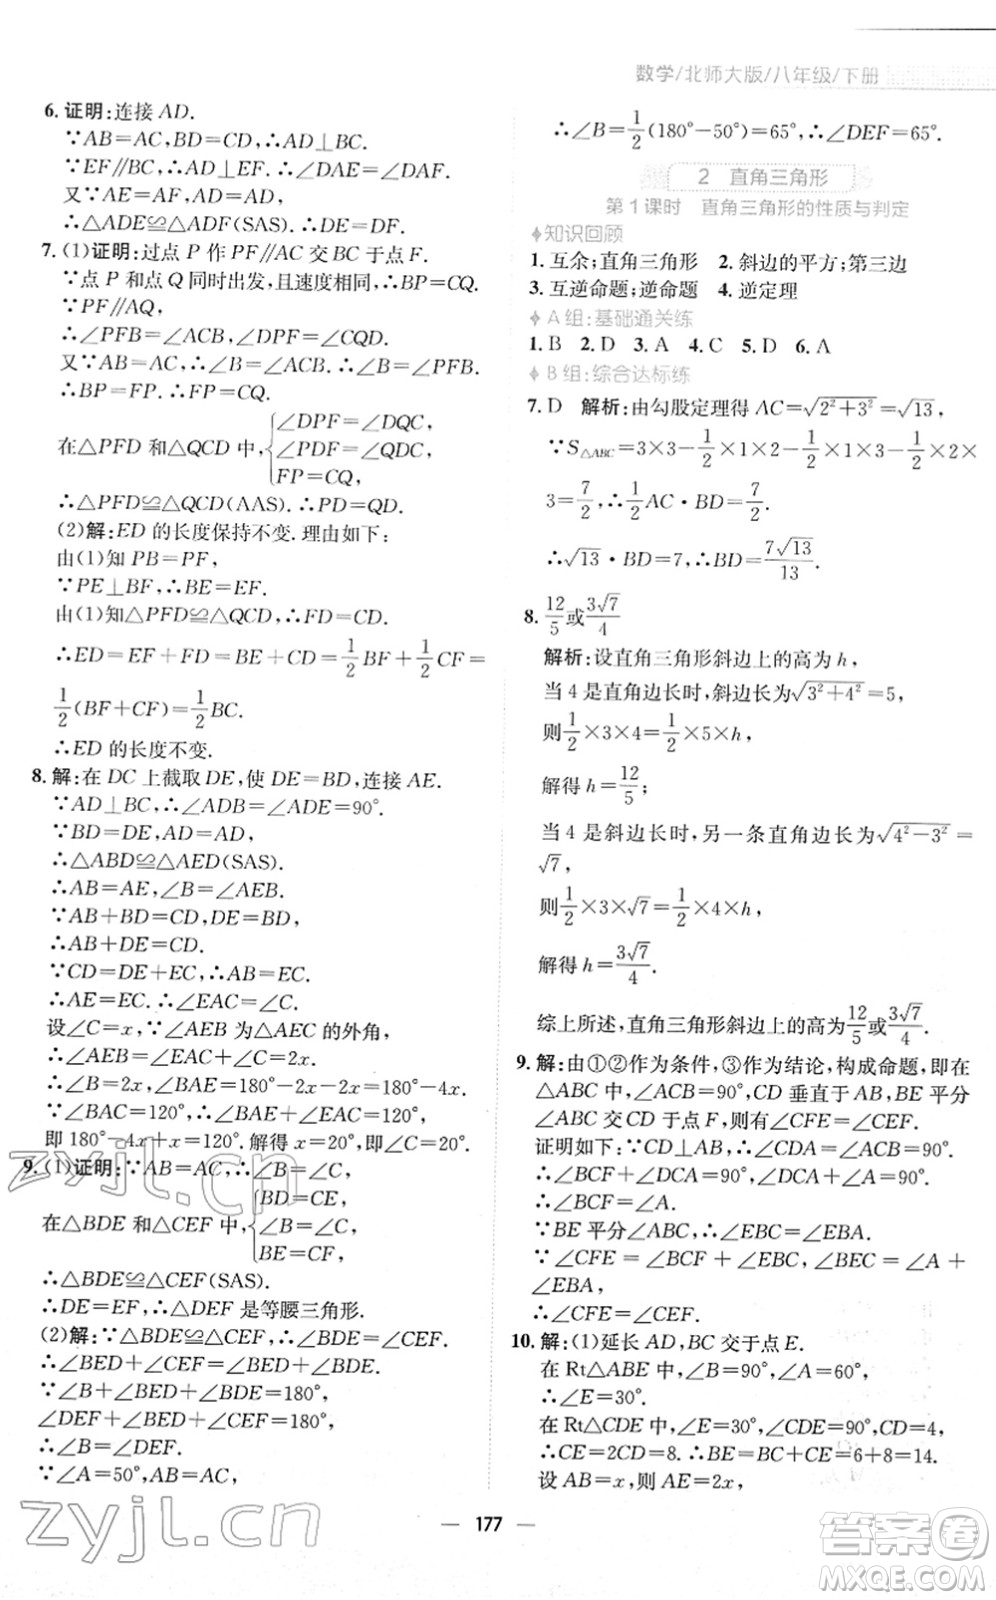 数学/北师大版/八年级/下册
6. 证明:连接 AD.
∵AB=AC,BD=CD,∴AD⊥BC.
∵EF∥BC,∴AD⊥EF.∴∠DAE=∠DAF.
又∵AE=AF,AD=AD,
∴△ADE≌△ADF(SAS).∴DE=DF.
7. (1)证明:过点 P 作 PF∥AC 交 BC 于点 F.
∵点 P 和点 Q 同时出发,且速度相同,∴BP=CQ.
∵PF∥AQ,
∴∠PFB=∠ACB,∠DPF=∠CQD.
又∵AB=AC,∴∠B=∠ACB.∴∠B=∠PFB.
∴BP=FP.∴FP=CQ.
在△PFD 和△QCD 中,{∠DPF=∠DQC,
∠PDF=∠QDC,
FP=CQ,
∴△PFD≌△QCD(AAS).∴PD=QD.
(2)解:ED 的长度保持不变.理由如下:
由(1)知 PB=PF,
∵PE⊥BF,∴BE=EF.
由(1)知△PFD≌△QCD,∴FD=CD.
∴ED=EF+FD=BE+CD=1/2BF+1/2CF=
1/2(BF+CF)=1/2BC.
∴ED 的长度不变.
8. 解:在 DC 上截取 DE,使 DE=BD,连接 AE.
∵AD⊥BC,∴∠ADB=∠ADE=90°.
∵BD=DE,AD=AD,
∴△ABD≌△AED(SAS).
∴AB=AE,∠B=∠AEB.
∵AB+BD=CD,DE=BD,
∴AB+DE=CD.
∵CD=DE+EC,∴AB=EC.
∴AE=EC.∴∠EAC=∠C.
设∠C=x,∵∠AEB 为△AEC 的外角,
∴∠AEB=∠EAC+∠C=2x.
∴∠B=2x,∠BAE=180°-2x-2x=180°-4x.
∵∠BAC=120°,∴∠BAE+∠EAC=120°,
即 180°-4x+x=120°.解得 x=20°,即∠C=20°.
9. (1)证明:∵AB=AC,∴∠B=∠C,
在△BDE 和△CEF 中,{BD=CE,
∠B=∠C,
BE=CF,
∴△BDE≌△CEF(SAS).
∴DE=EF,∴△DEF 是等腰三角形.
(2)解:∵△BDE≌△CEF,∴∠BDE=∠CEF.
∴∠BED+∠CEF=∠BED+∠BDE.
∵∠B+∠BDE+∠BED=180°,
∠DEF+∠BED+∠CEF=180°,
∴∠B=∠DEF.
∵∠A=50°,AB=AC,
∴∠B=1/2(180°-50°)=65°,∴∠DEF=65°.
2 直角三角形
第 1 课时 直角三角形的性质与判定
知识回顾
1. 互余;直角三角形 2. 斜边的平方;第三边
3. 互逆命题;逆命题 4. 逆定理
A 组:基础通关练
1. B 2. D 3. A 4. C 5. D 6. A
B 组:综合达标练
7. D 解析:由勾股定理得 AC=√(2²+3²)=√13,
∵S△ABC=3×3-1/2×1×2-1/2×1×3-1/2×2×
3=7/2,∴1/2AC·BD=7/2.
∴√13·BD=7,∴BD=7√13/13.
8. 12/5或3√7/4
解析:设直角三角形斜边上的高为 h,
当 4 是直角边长时,斜边长为√(3²+4²)=5,
则1/2×3×4=1/2×5×h,
解得 h=12/5;
当 4 是斜边长时,另一条直角边长为√(4²-3²)=
√7,
则1/2×3×√7=1/2×4×h,
解得 h=3√7/4.
综上所述,直角三角形斜边上的高为12/5或3√7/4.
9. 解:由①②作为条件,③作为结论,构成命题,即在
△ABC 中,∠ACB=90°,CD 垂直于 AB,BE 平分
∠ABC 交 CD 于点 F,则有∠CFE=∠CEF.
证明如下:∵CD⊥AB,∴∠CDA=∠ACB=90°.
∴∠BCF+∠ACD=∠ACD+∠A=90°.
∴∠BCF=∠A.
∵BE 平分∠ABC,∴∠EBC=∠EBA.
∵∠CFE=∠BCF+∠EBC,∠BEC=∠A+
∠EBA,
∴∠CFE=∠CEF.
10. 解:(1)延长 AD,BC 交于点 E.
在 Rt△ABE 中,∠B=90°,∠A=60°,
∴∠E=30°.
在 Rt△CDE 中,∠E=30°,∠CDE=90°,CD=4,
∴CE=2CD=8.∴BE=BC+CE=6+8=14.
设 AB=x,则 AE=2x,
— 177 —
zyjl.cn
zyjl.cn
答案圈
MXQE.COM